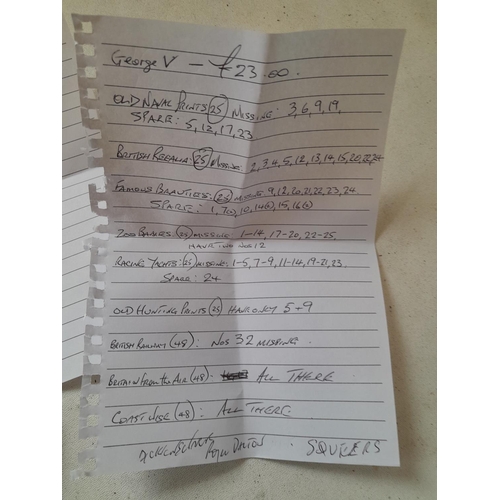 George V — £23.00.
OLD NAVAL PRINTS (25) MISSING: 3,6,9,19,
SPARE: 5,12,17,23
BRITISH REGALIA: (25) MISSING: 2,3,4,5,12,13,14,15,20,22,24
FAMOUS BEAUTIES: (25) MISSING 9,12,20,21,22,23,24
SPARE: 1, 7(2), 10, 14(2), 15, 16(2)
ZOO BABIES: (25) MISSING 1-14, 17-20, 22-25
HAVE TWO NO 12
RACING YACHTS: (25) MISSING: 1-5, 7-9, 11-14, 19-21, 23.
SPARE: 24
OLD HUNTING PRINTS (25) HAVE ONLY 5+9
BRITISH RAILWAY (48): NOS 32 MISSING.
BRITAIN FROM THE AIR (48) ALL THERE
COASTWISE (48): ALL THERE.
ROYAL DOULTON - SQUEERS